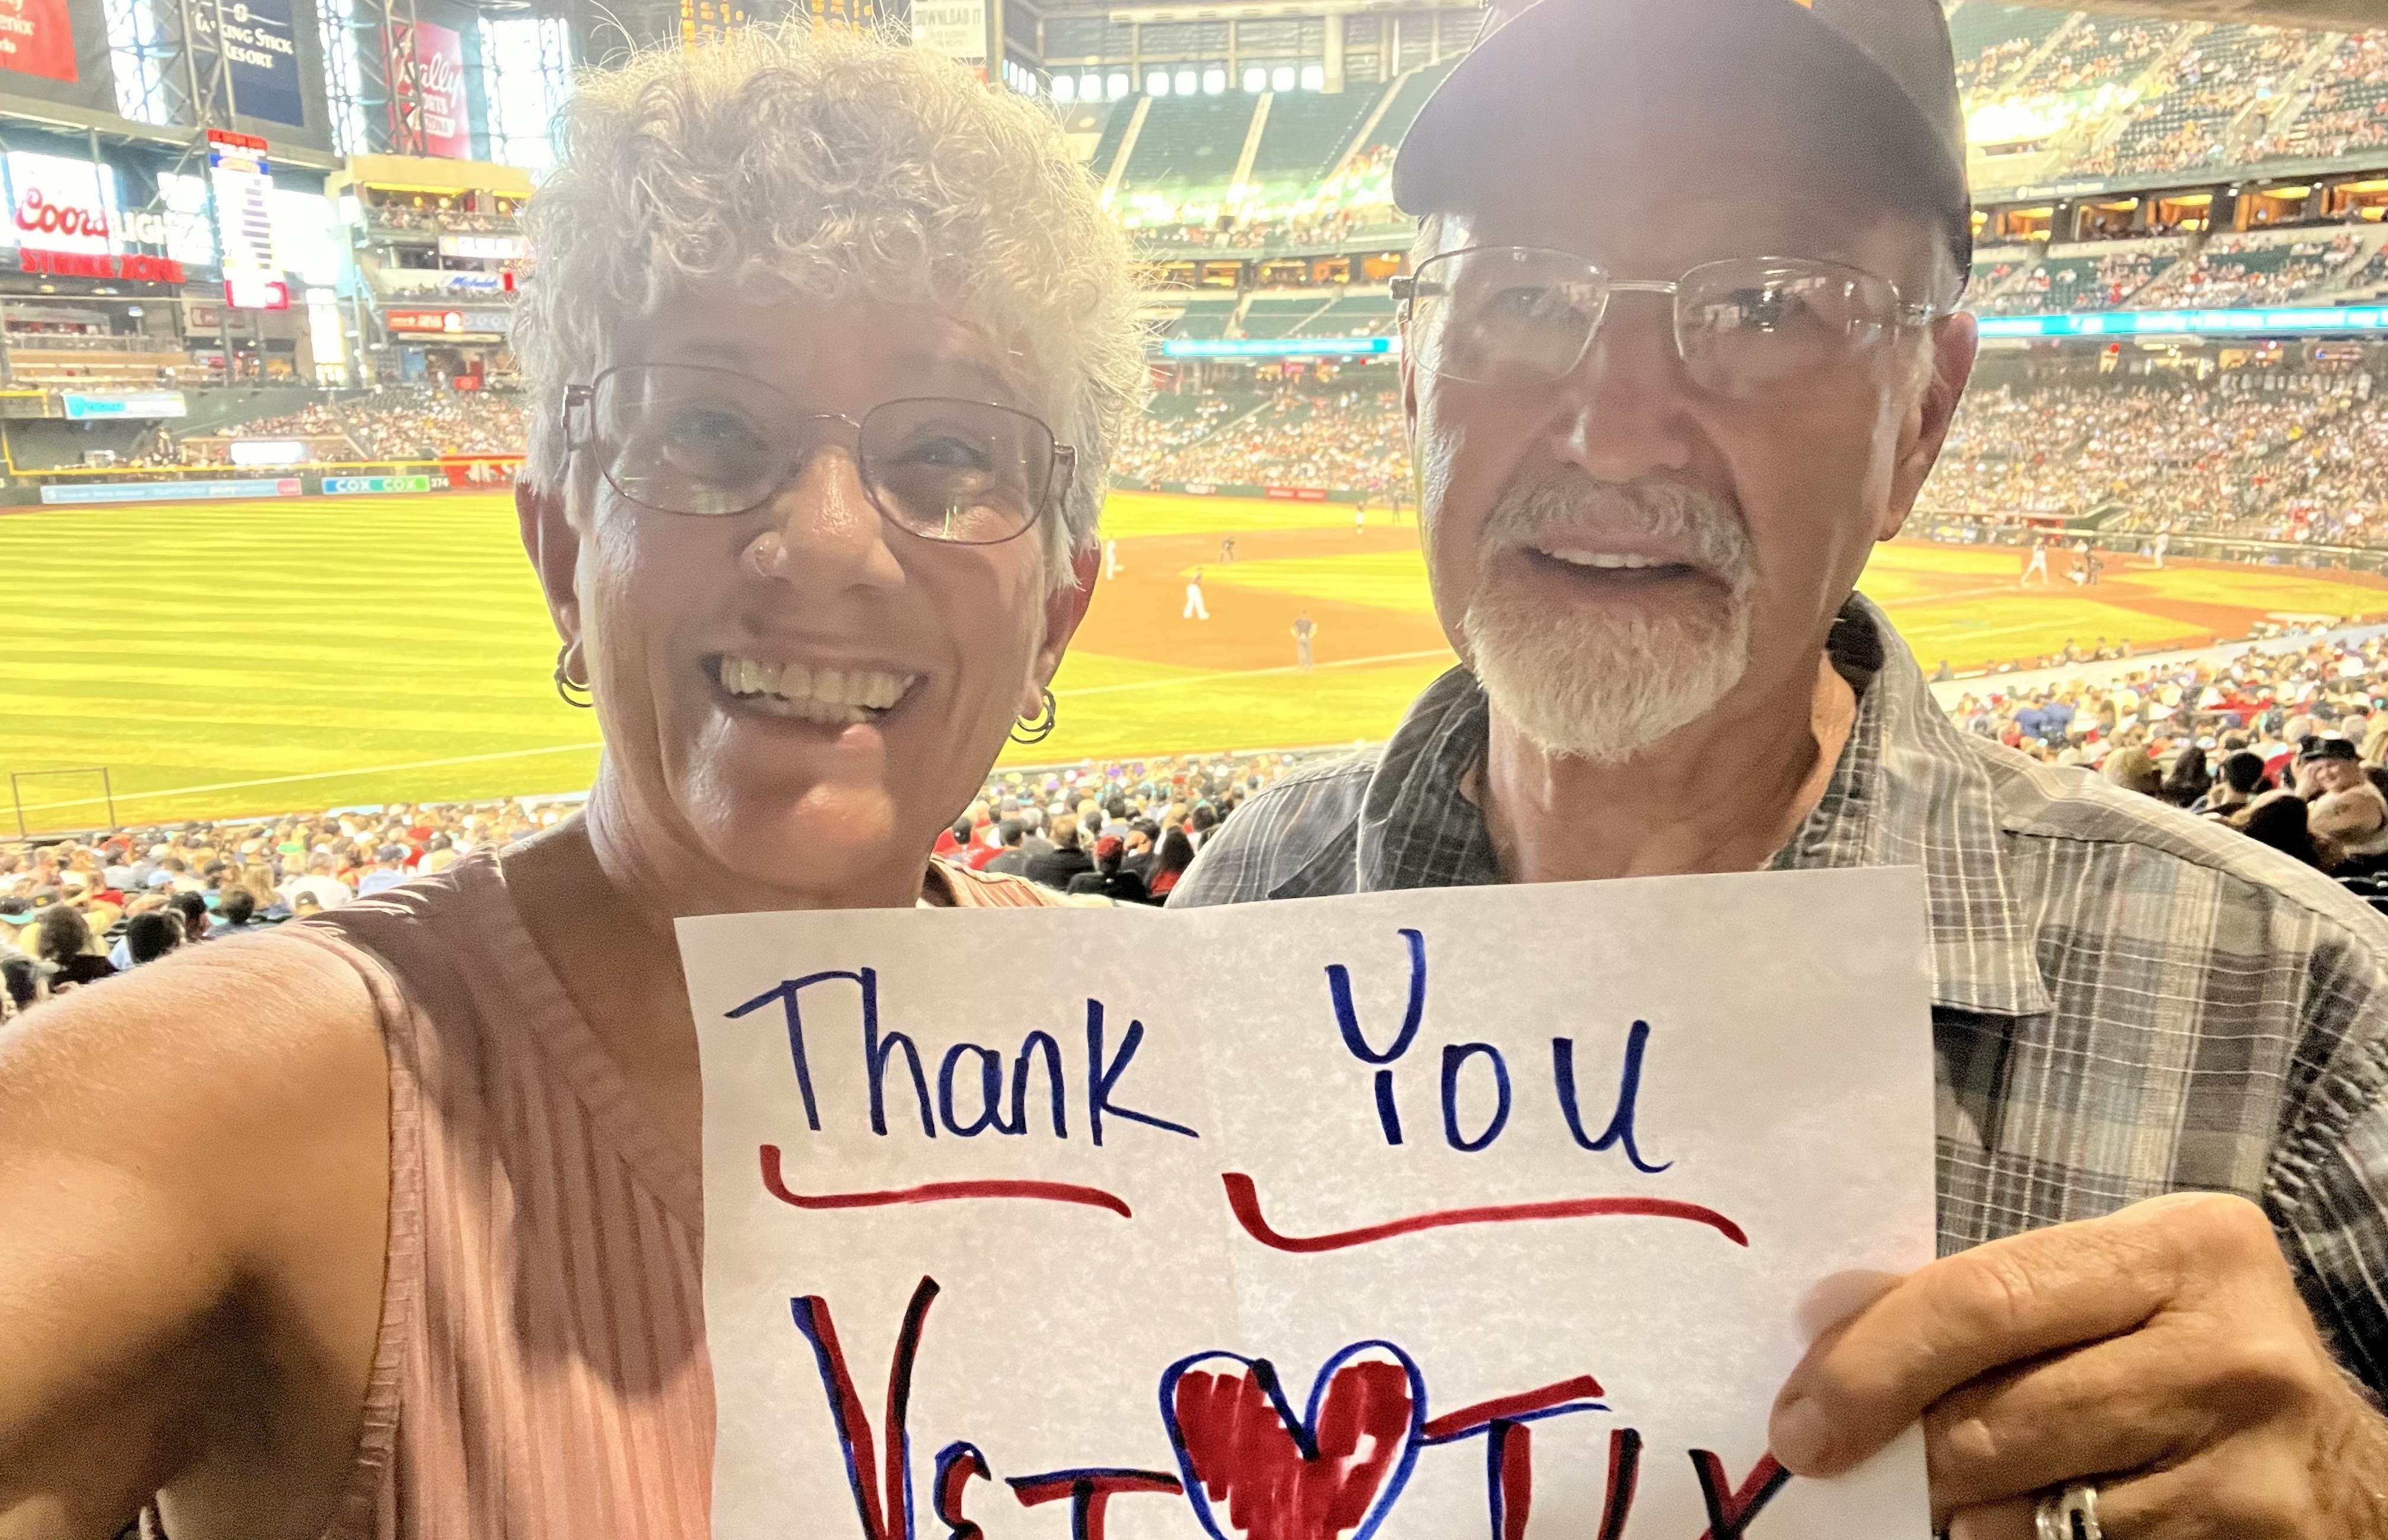 TALKING STICK
RESORT
DOWNLOAD IT
Coors LIGHT
STRIKE ZONE
COX COX 374
Thank You
VET TIX